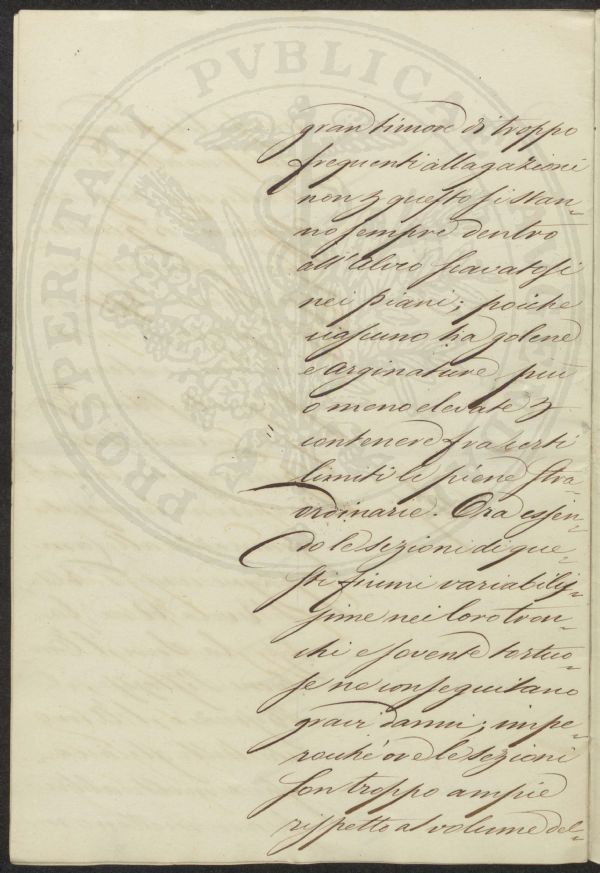 PROSPERITATI PVBLICAE
gran timore di troppo
frequenti allagazioni
non ꝫ questo si stan=
no sempre dentro
all'alveo scavatosi
nei piani; poiche
ciascuno ha golene
e arginature più
o meno elevate ꝫ
contenere fra certi
limiti le piene stra=
ordinarie. Ora essen=
do le sezioni di que=
sti fiumi variabilis=
sime nei loro tron=
chi e sovente tortuo=
se ne conseguitano
gravi danni; impe=
rocché ove le sezioni
son troppo ampie
rispetto al volume del=